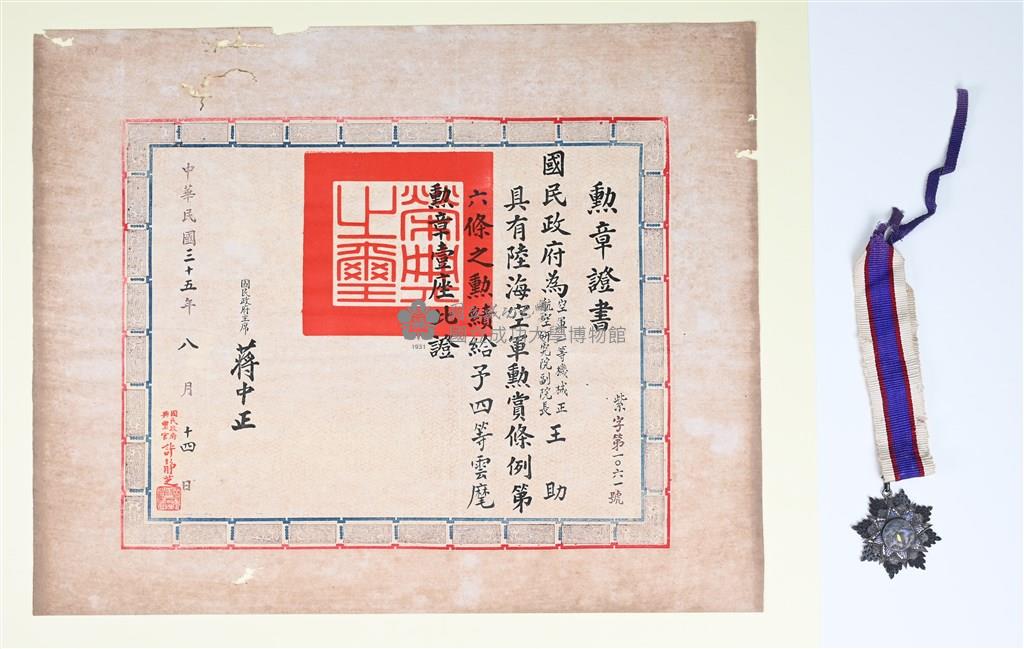 勲章證書
紫字第一〇六一號
國民政府為空軍一等機械正航空研究院副院長王助
具有陸海空軍勲賞條例第
六條之勲績給予四等雲麾
勲章壹座此證
榮典之璽
國民政府主席
蔣中正
中華民國三十五年八月十四日
國民政府
典璽官許靜芝
國立成功大學博物館
1931